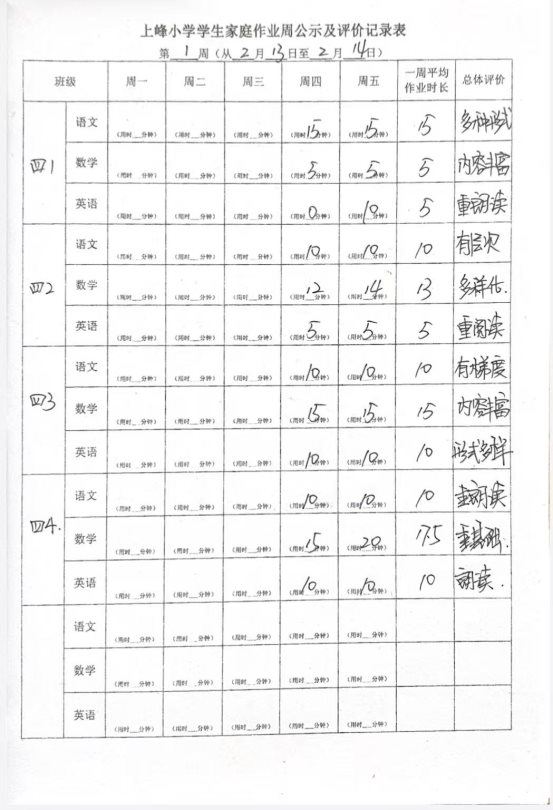 上峰小学学生家庭作业周公示及评价记录表
第 1 周（从 2 月 13 日至 2 月 14 日）
班级 周一 周二 周三 周四 周五 一周平均作业时长 总体评价
四1 语文 （用时__分钟） （用时__分钟） （用时__分钟） （用时15分钟） （用时15分钟） 15 多种形式
数学 （用时__分钟） （用时__分钟） （用时__分钟） （用时5分钟） （用时5分钟） 5 内容丰富
英语 （用时__分钟） （用时__分钟） （用时__分钟） （用时0分钟） （用时10分钟） 5 重朗读
四2 语文 （用时__分钟） （用时__分钟） （用时__分钟） （用时10分钟） （用时10分钟） 10 有层次
数学 （用时__分钟） （用时__分钟） （用时__分钟） （用时12分钟） （用时14分钟） 13 多样化.
英语 （用时__分钟） （用时__分钟） （用时__分钟） （用时5分钟） （用时5分钟） 5 重阅读
四3 语文 （用时__分钟） （用时__分钟） （用时__分钟） （用时10分钟） （用时10分钟） 10 有梯度
数学 （用时__分钟） （用时__分钟） （用时__分钟） （用时15分钟） （用时15分钟） 15 内容丰富
英语 （用时__分钟） （用时__分钟） （用时__分钟） （用时10分钟） （用时10分钟） 10 形式多样
四4. 语文 （用时__分钟） （用时__分钟） （用时__分钟） （用时10分钟） （用时10分钟） 10 重朗读
数学 （用时__分钟） （用时__分钟） （用时__分钟） （用时15分钟） （用时20分钟） 17.5 重基础.
英语 （用时__分钟） （用时__分钟） （用时__分钟） （用时10分钟） （用时10分钟） 10 朗读.
语文 （用时__分钟） （用时__分钟） （用时__分钟） （用时__分钟） （用时__分钟）
数学 （用时__分钟） （用时__分钟） （用时__分钟） （用时__分钟） （用时__分钟）
英语 （用时__分钟） （用时__分钟） （用时__分钟） （用时__分钟） （用时__分钟）